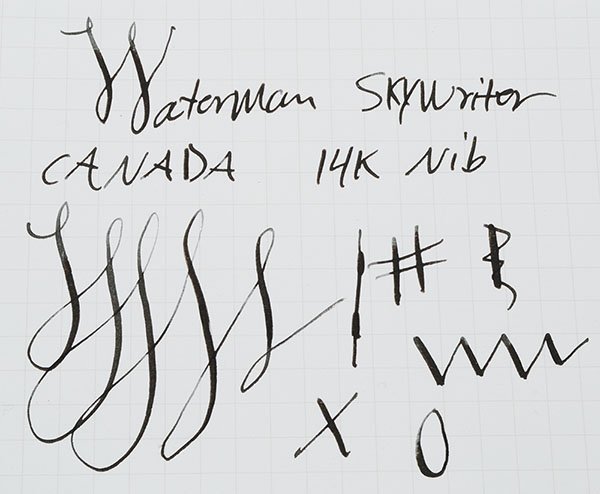 Waterman Skywriter
CANADA 14K Nib
#
X O